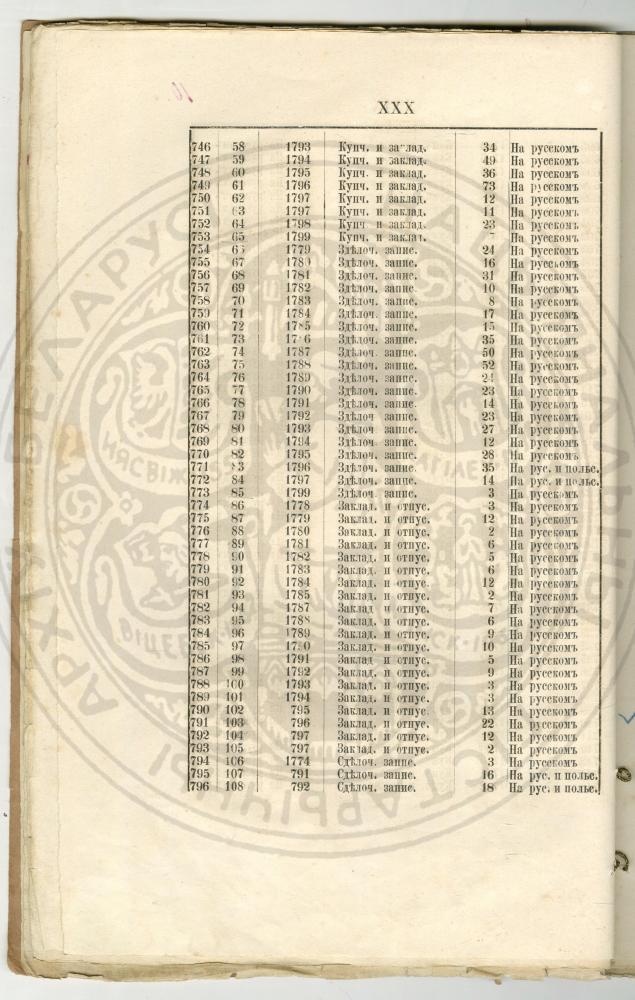 XXX
746 58 1793 Купч. и заклад. 34 На русскомъ
747 59 1794 Купч. и заклад. 49 На русскомъ
748 60 1795 Купч. и заклад. 36 На русскомъ
749 61 1796 Купч. и заклад. 73 На русскомъ
750 62 1797 Купч. и заклад. 12 На русскомъ
751 63 1797 Купч. и заклад. 11 На русскомъ
752 64 1798 Купч. и заклад. 23 На русскомъ
753 65 1799 Купч. и заклад. На русскомъ
754 1779 Здѣлоч. запис. 24 На русскомъ
755 67 1780 Здѣлоч. запис. 16 На русскомъ
756 68 1781 Здѣлоч. запис. 31 На русскомъ
757 69 1782 Здѣлоч. запис. 10 На русскомъ
758 70 1783 Здѣлоч. запис. 8 На русскомъ
759 71 1784 Здѣлоч. запис. 17 На русскомъ
760 72 1785 Здѣлоч. запис. 15 На русскомъ
761 73 1786 Здѣлоч. запис. 35 На русскомъ
762 74 1787 Здѣлоч. запис. 50 На русскомъ
763 75 1788 Здѣлоч. запис. 52 На русскомъ
764 76 1789 Здѣлоч. запис. На русскомъ
765 77 1790 Здѣлоч. запис. 23 На русскомъ
766 78 1791 Здѣлоч. запис. 14 На русскомъ
767 79 1792 Здѣлоч запис. 23 На русскомъ
768 80 1793 Здѣлоч запис. 27 На русскомъ
769 81 1794 Здѣлоч. запис. 12 На русскомъ
770 82 1795 Здѣлоч. запис. 28 На русскомъ
771 83 1796 Здѣлоч. запис. 35 На рус. и польс.
772 84 1797 Здѣлоч. запис. 14 На рус. и польс.
773 85 1799 Здѣлоч. запис. 3 На русскомъ
774 86 1778 Заклад. и отпус. 3 На русскомъ
775 87 1779 Заклад. и отпус. 12 На русскомъ
776 88 1780 Заклад. и отпус. 2 На русскомъ
777 89 1781 Заклад. и отпус. 6 На русскомъ
778 90 1782 Заклад. и отпус. 5 На русскомъ
779 91 1783 Заклад. и отпус. 6 На русскомъ
780 92 1784 Заклад. и отпус. 12 На русскомъ
781 93 1785 Заклад. и отпус. 2 На русскомъ
782 94 1787 Заклад и отпус. 7 На русскомъ
783 95 1788 Заклад. и отпус. 6 На русскомъ
784 96 1789 Заклад. и отпус. 9 На русскомъ
785 97 1790 Заклад. и отпус. 10 На русскомъ
786 98 1791 Заклад и отпус. 5 На русскомъ
787 99 1792 Заклад. и отпус. 9 На русскомъ
788 100 1793 Заклад. и отпус. 3 На русскомъ
789 101 1794 Заклад. и отпус. 3 На русскомъ
790 102 795 Заклад. и отпус. 13 На русскомъ
791 103 796 Заклад. и отпус. 22 На русскомъ
792 104 797 Заклад. и отпус. 12 На русскомъ
793 105 797 Заклад. и отпус. 2 На русскомъ
794 106 1774 Сдѣлоч. запис. 3 На русскомъ
795 107 791 Сдѣлоч. запис. 16 На рус. и польс.
796 108 792 Сдѣлоч. запис. 18 На рус. и польс.